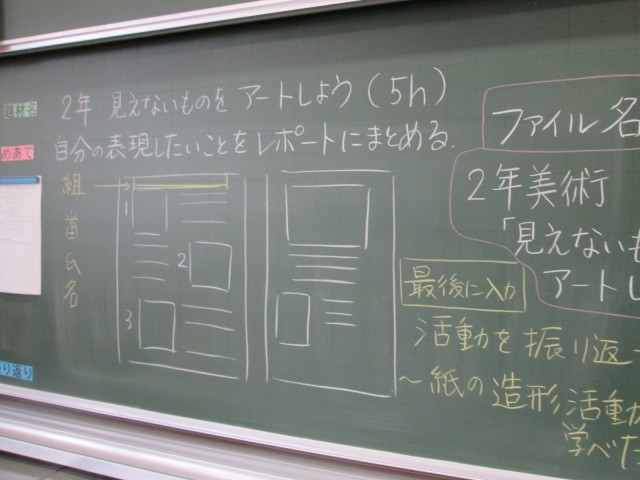 題材名
2年 見えないものを アートしよう(5h)
めあて
自分の表現したいことをレポートにまとめる.
組
番
氏
名
1
2
3
ファイル名
2年美術
「見えないも
アートし
最後に入力
活動を振り返
～紙の造形活動か
学べた
り返り